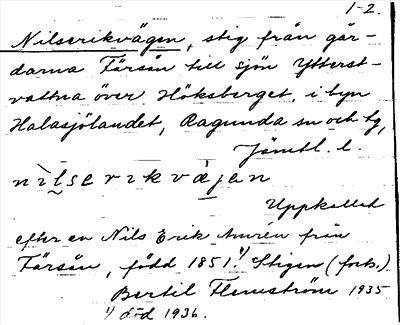 1-2.
Nilserikvägen, stig från går-
darna Färsån till sjön Ytterst-
vattna över Höksberget, i byn
Halasjölandet, Ragunda sn och tg,
Jämtl. l.
nilserikväjen
Uppkallad
efter en Nils Erik Amrén från
Färsån, född 1851.¹) Stigen (forts.)
Bertil Flemström 1935
¹) död 1936.